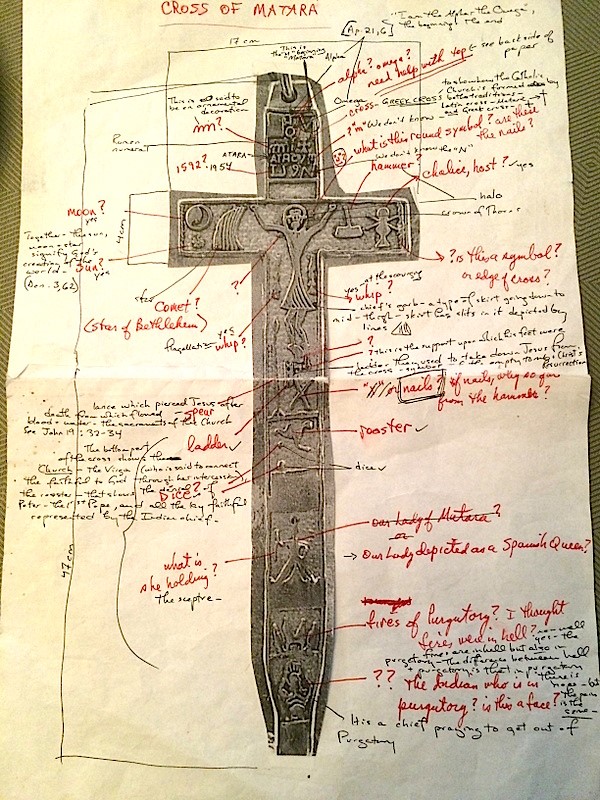 CROSS OF MATARA
"I am the Alpha the Omega",
the beginning & the end
[Ap. 21,6]
17 cm
This is
the "beginning
"Matara"
Alpha
alpha? omega?
need help with top
see back side of
paper
Omega
cross - GREEK CROSS
to show how the Catholic
Church is formed by
both traditions -
Latin cross - Matara
and Greek cross - +
This is said to
be an ornamental
decoration
m?
"m" We don't know
what is this round symbol? are these
the nails?
We don't know the "N"
Roman
numeral
ATARA
1592? 1954
hammer?
chalice, host? yes
halo
crown of Thorns
moon?
yes
4cm
Together - the sun,
moon + star
signify God's
creation of the
world -
(Dan. 3,62)
Sun?
yes
star
Comet?
(star of Bethlehem)
?
? is this a symbol?
or edge of cross?
yes - at the scourging
whip?
chief's garb - a type of skirt going down to
mid-thigh - skirt has slits in it depicted by
lines
yes
flagellation whip?
?
? This is the support upon which his feet were
ladder they used to take down Jesus from
the cross - symbol
Christ's
Resurrection
"////" or nails? if nails, why so far
from the hammer?
lance which pierced Jesus after
death from which flowed - spear
blood + water - the sacraments of the Church
See John 19: 32-34
ladder
rooster ✓
The bottom part
of the cross shows the
Church - the Virgin (who is said to connect
the faithful to God through her intercession
the rooster - that shows the denial of
DICE?
Peter - the 1st Pope, and all the lay faithful
represented by the Indian chief.
dice ✓
47cm
our Lady of Matara?
or
→ Our Lady depicted as a Spanish Queen?
what is
she holding?
The sceptre -
fires of Purgutory? I thought
fires were in hell?
well
yes - the
fires are in hell but also in
purgatory - The difference between hell
+ purgatory is that in purgatory
there is
hope - but
the pain
is the
same -
?? The Indian who is in
purgutory? is this a face?
It is a chief praying to get out of
Purgatory